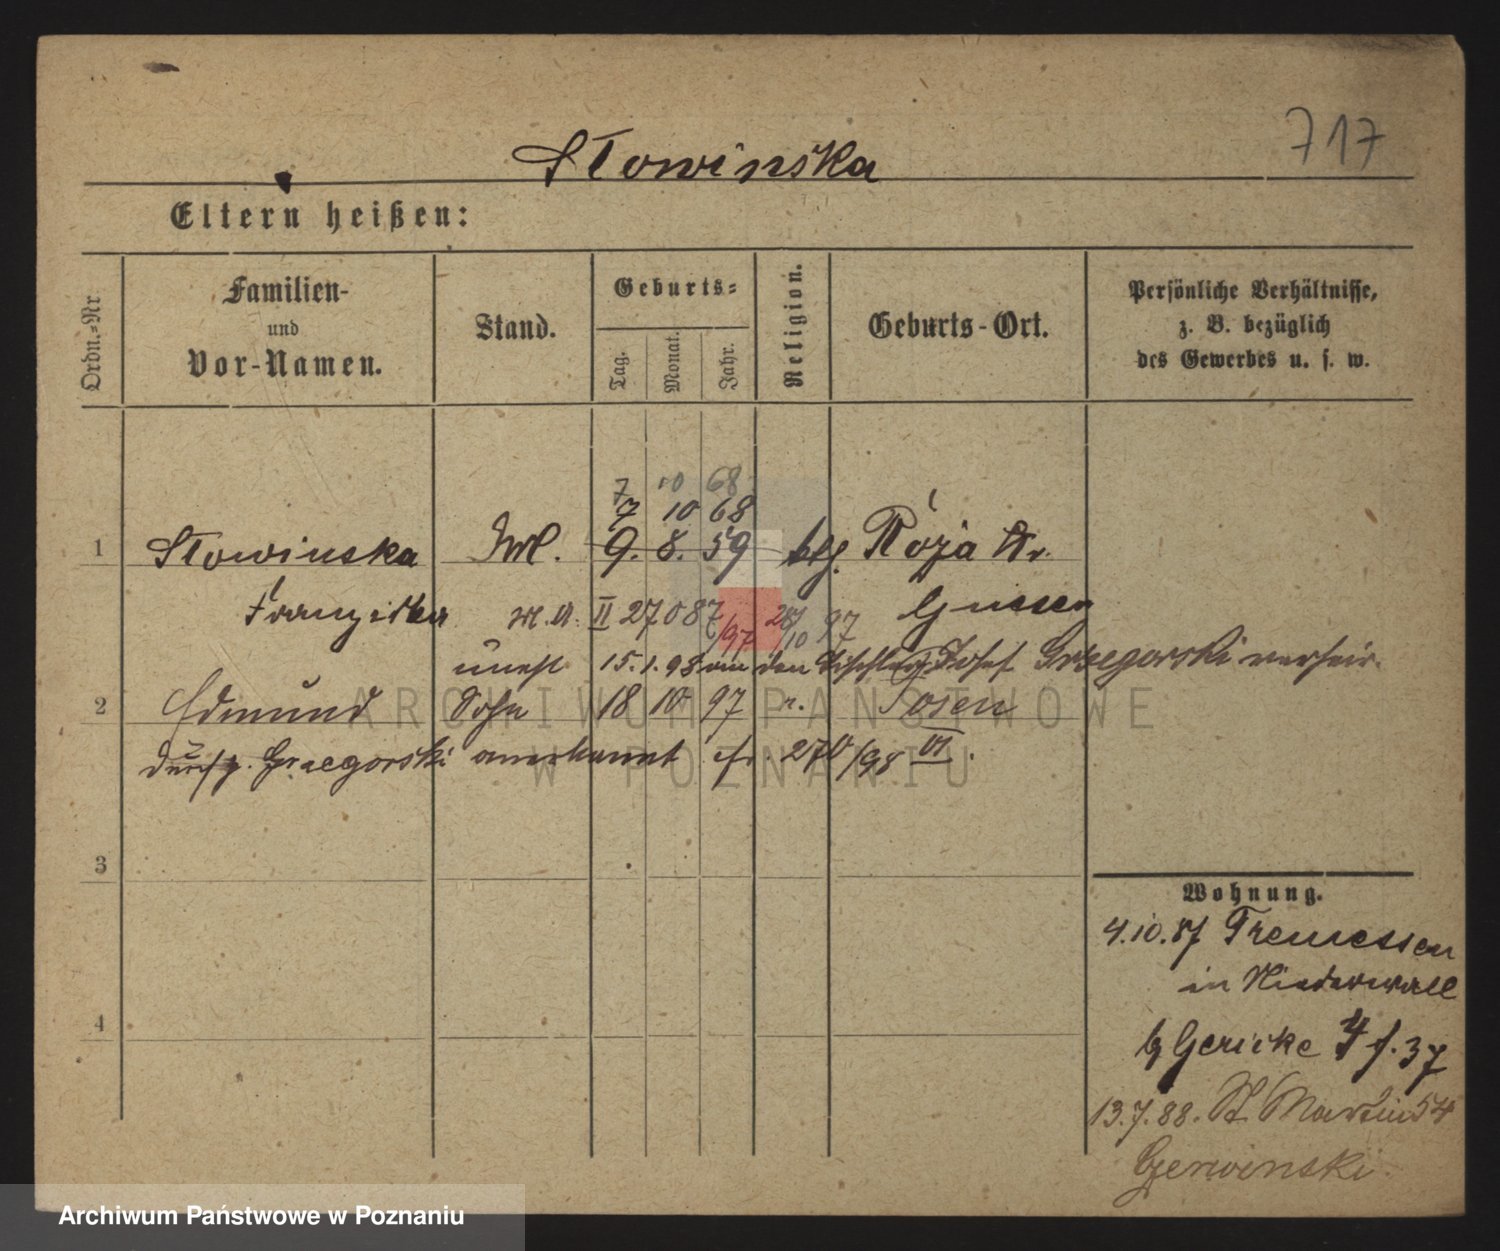 717
Słowinska
Eltern heißen:
Ordn.-Nr
Familien-
und
Vor-Namen.
Stand.
Geburts-
Tag.
Monat.
Jahr.
Religion.
Geburts-Ort.
Persönliche Verhältnisse,
z. B. bezüglich
des Gewerbes u. s. w.
7 10 68
7 10 68
1 Słowinska 9. 8. 59 Róża Kr.
Franziska II 27087 Gnesen
/97 28/10 97
unehl. 15.1.98 den Tischler Josef Grzegorski verheir.
2 Edmund Sohn 18 10 97 r. Posen
durch p. Grzegorski anerkannt cfr. 270/98 VI.
3
4
Wohnung.
4.10.87 Tremessen
in Niederwall
b Gericke 4 f. 37
13.7.88. St Martin 54
Gerwinski
ARCHIWUM PAŃSTWOWE
W POZNANIU
Archiwum Państwowe w Poznaniu